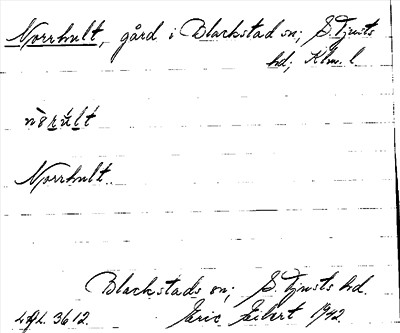 Norrhult, gård i Blackstad sn; S. Tjusts
hd; Klm. l.
Norrhult
Blackstads sn; S. Tjusts hd.
Eric Eibert 1942